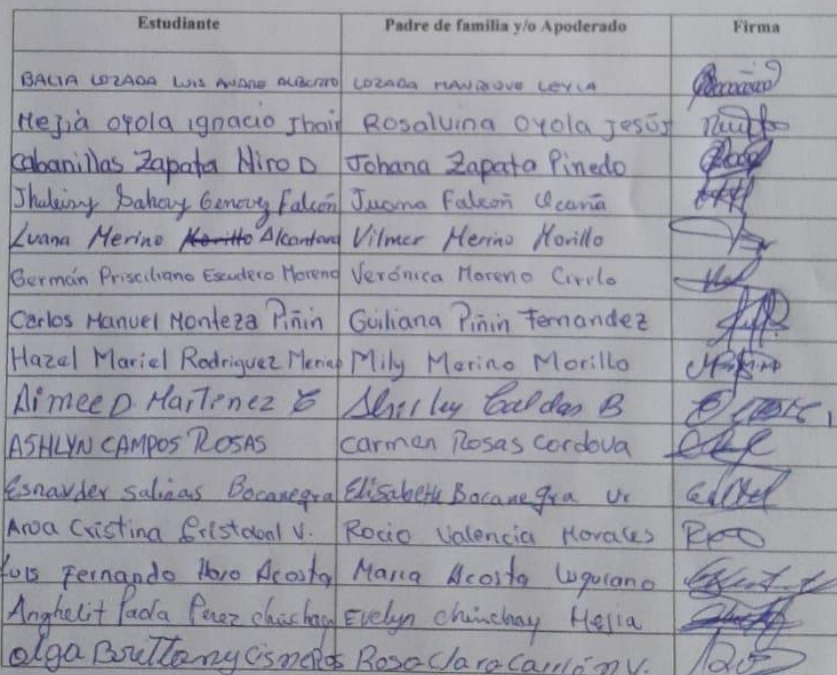 Estudiante Padre de familia y/o Apoderado Firma
BALTA LOZADA LUIS ANDRE ALBERTO LOZADA MANRIQUE LEYLA
Mejia oyola ignacio Jhair Rosaluina Oyola Jesús
Cabanillas Zapata Niro D Johana Zapata Pinedo
Falcón Juana Falcón Ucaña
Luana Merino Alcantara Vilmer Merino Morillo
Germán Prisciliano Escudero Moreno Verónica Moreno Cirilo
Carlos Manuel Monteza Piñin Guiliana Piñin Fernandez
Hazel Mariel Rodriguez Merino Mily Merino Morillo
Aimee D. Martinez Shirley Caldas B
ASHLYN CAMPOS ROSAS Carmen Rosas Cordova
Esnayder Salinas Bocanegra Elisabeth Bocanegra
Cristina Cristobal V. Rocio Valencia Morales
Luis Fernando Haro Acosta Maria Acosta
Anghelit Paola Perez chinchay Evelyn Chinchay Mejia
olga Cisneros Rosa Clara V.